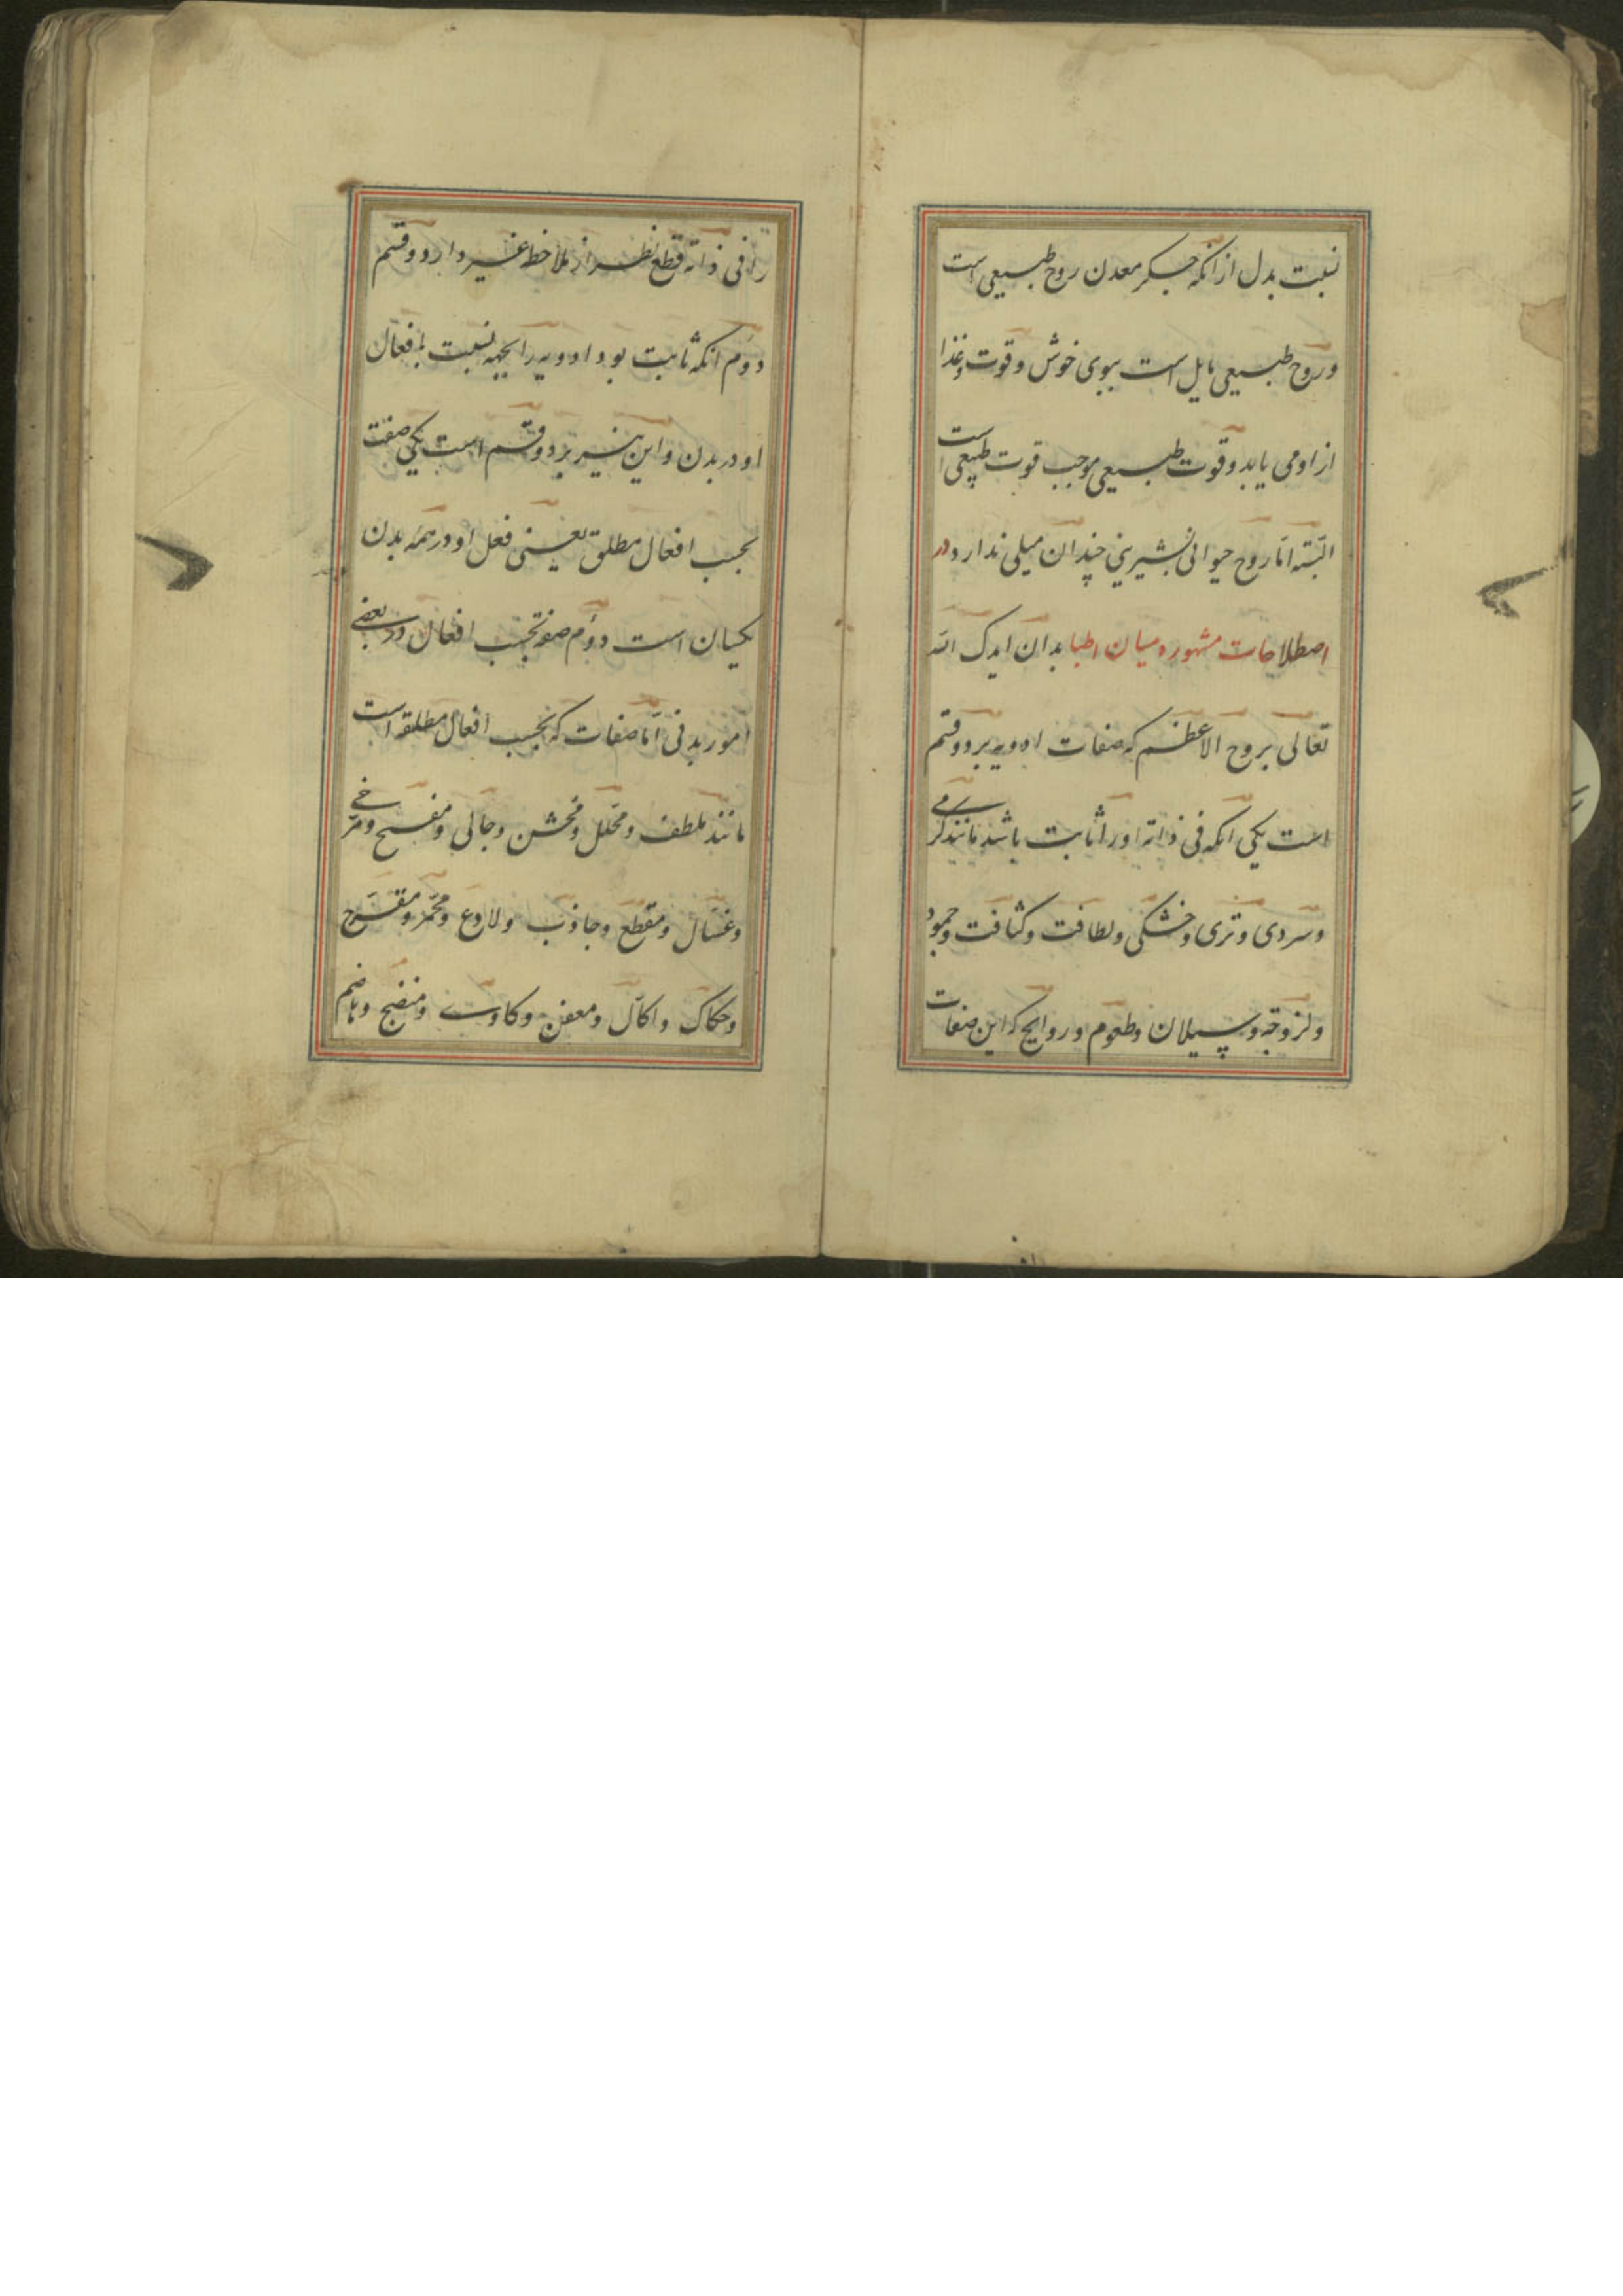 نسبت بدل از انکه جکر معدن روح طبیعی است
و روح طبیعی مایل است ببوی خوش و قوت و غذا
از او می یابد و قوت طبیعی موجب قوت طبیعی است
البته اما روح حیوانی بشیرینی چندان میلی ندارد و در
اصطلاحات مشهوره میان اطبا بدان ایدک الله
تعالی بروح الاعظم که صفات ادویه بر دو قسم
است یکی انکه فی ذاته او را ثابت باشد مانند کرمی
و سردی و تری و خشکی و لطافت و کثافت و جمود
و لزوجة و سیلان و طعوم و روایح که این صفات
را فی ذاته قطع نظر از ملاحظه غیر دارد و قسم
دوم انکه ثابت بود ادویه را بجهة نسبت بافعال
او در بدن و این نیز بر دو قسم است یکی صفت
بحسب افعال مطلق یعنی فعل او در همه بدن
یکسان است دوم صفت بحسب افعال در بعضی
امور بدنی اما صفات که بحسب افعال مطلقه است
مانند ملطف و محلل و مخشن و جالی و مفسح و مرخی
و غسال و مقطع و جاذب و لاذع و محمر و مقرح
و حکاک و اکال و معفن و کاوی و منضج و هاضم